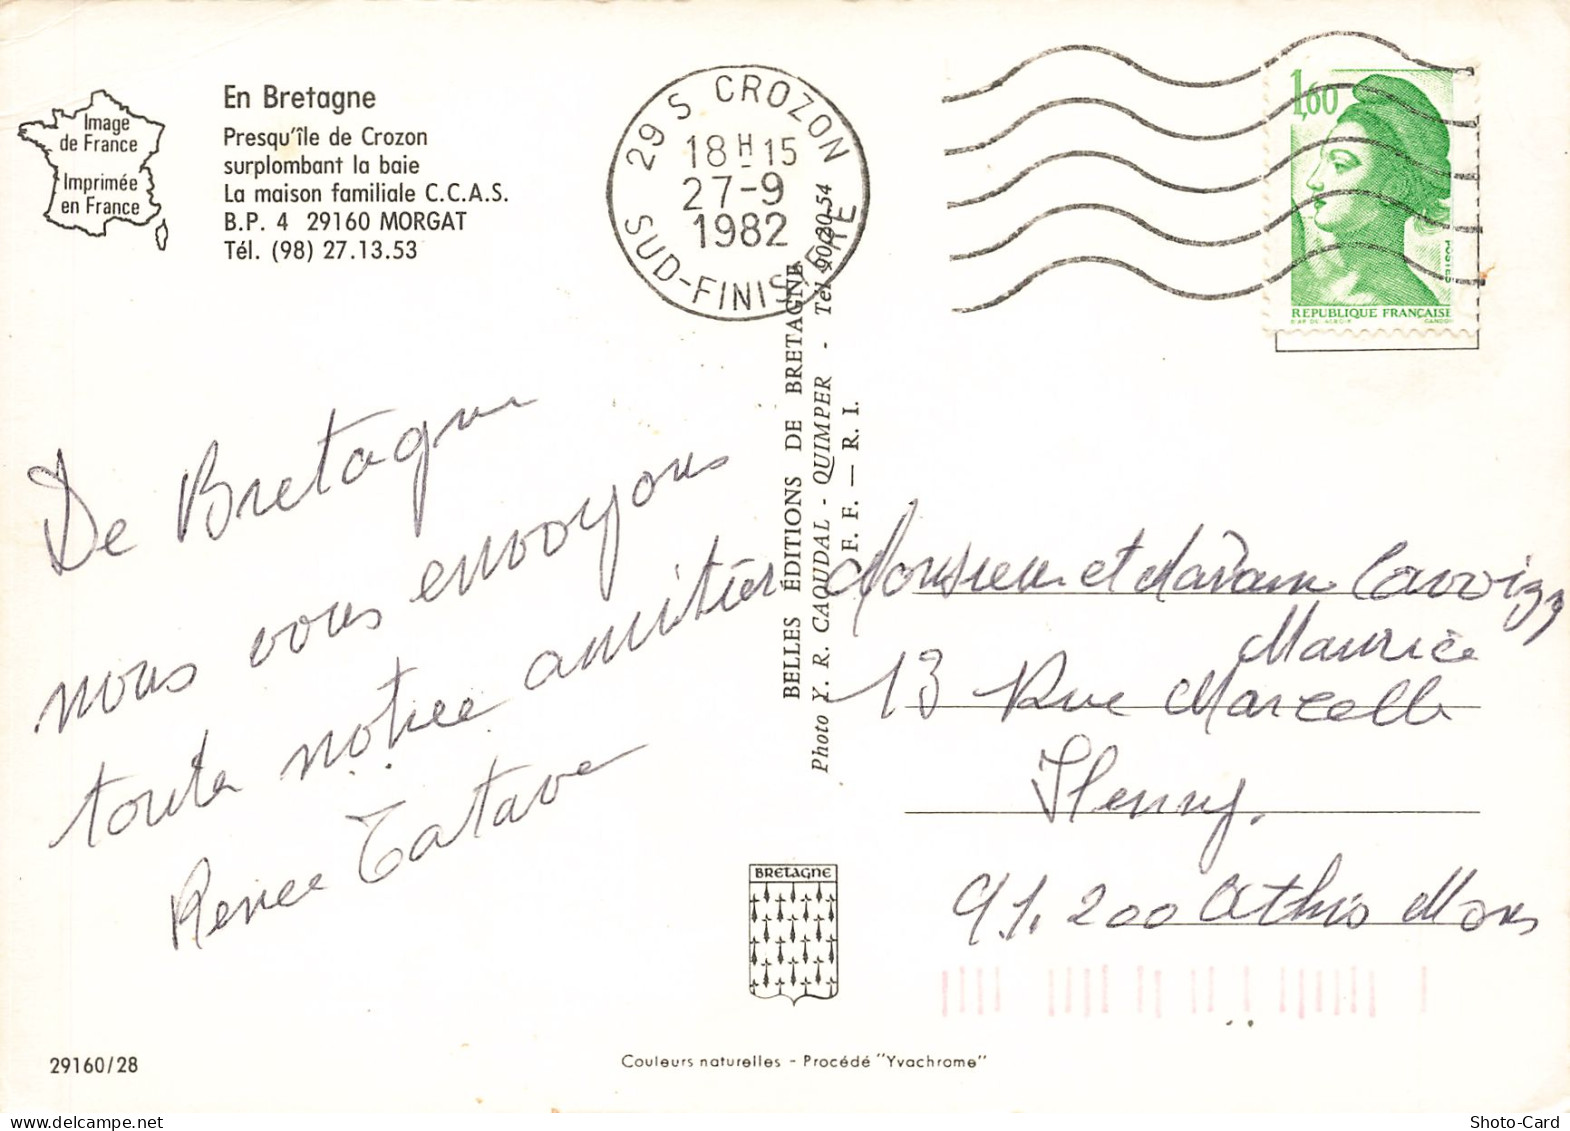 Image
de France
Imprimée
en France
En Bretagne
Presqu'île de Crozon
surplombant la baie
La maison familiale C.C.A.S.
B.P. 4 29160 MORGAT
Tél. (98) 27.13.53
29 S CROZON
18H15
27-9
1982
SUD-FINISTERE
1,60
POSTES
REPUBLIQUE FRANÇAISE
De Bretagne
nous vous envoyons
toute notre amitiés
Renée Tatave
BELLES ÉDITIONS DE BRETAGNE
Photo Y. R. CAOUDAL - QUIMPER - Tél. 90.20.54
F. F. — R. I.
Monsieur et Madame
Maurice
13 Rue Marcelle
Henry.
91.200 Athis Mons
BRETAGNE
29160/28
Couleurs naturelles - Procédé "Yvachrome"
Shoto-Card